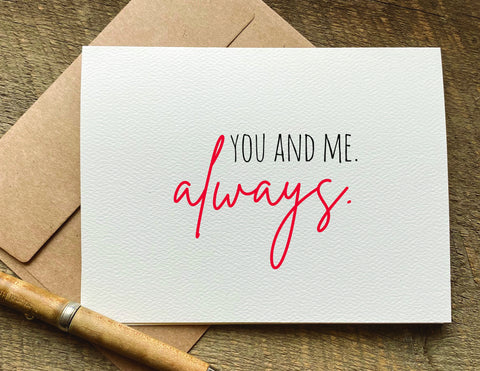 YOU AND ME.
always.